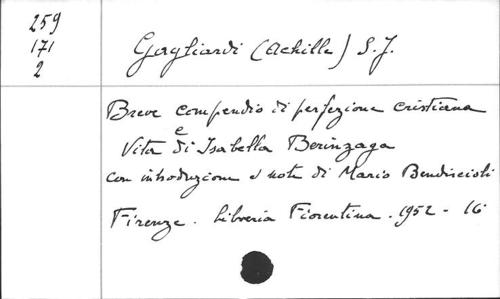 259
171
2
Gagliardi (Achille) S. J.
Breve compendio di perfezione cristiana
e
Vita di Isabella Berinzaga
con introduzione e note di Mario Bendiscioli
Firenze. Libreria Fiorentina. 1952 - 16°